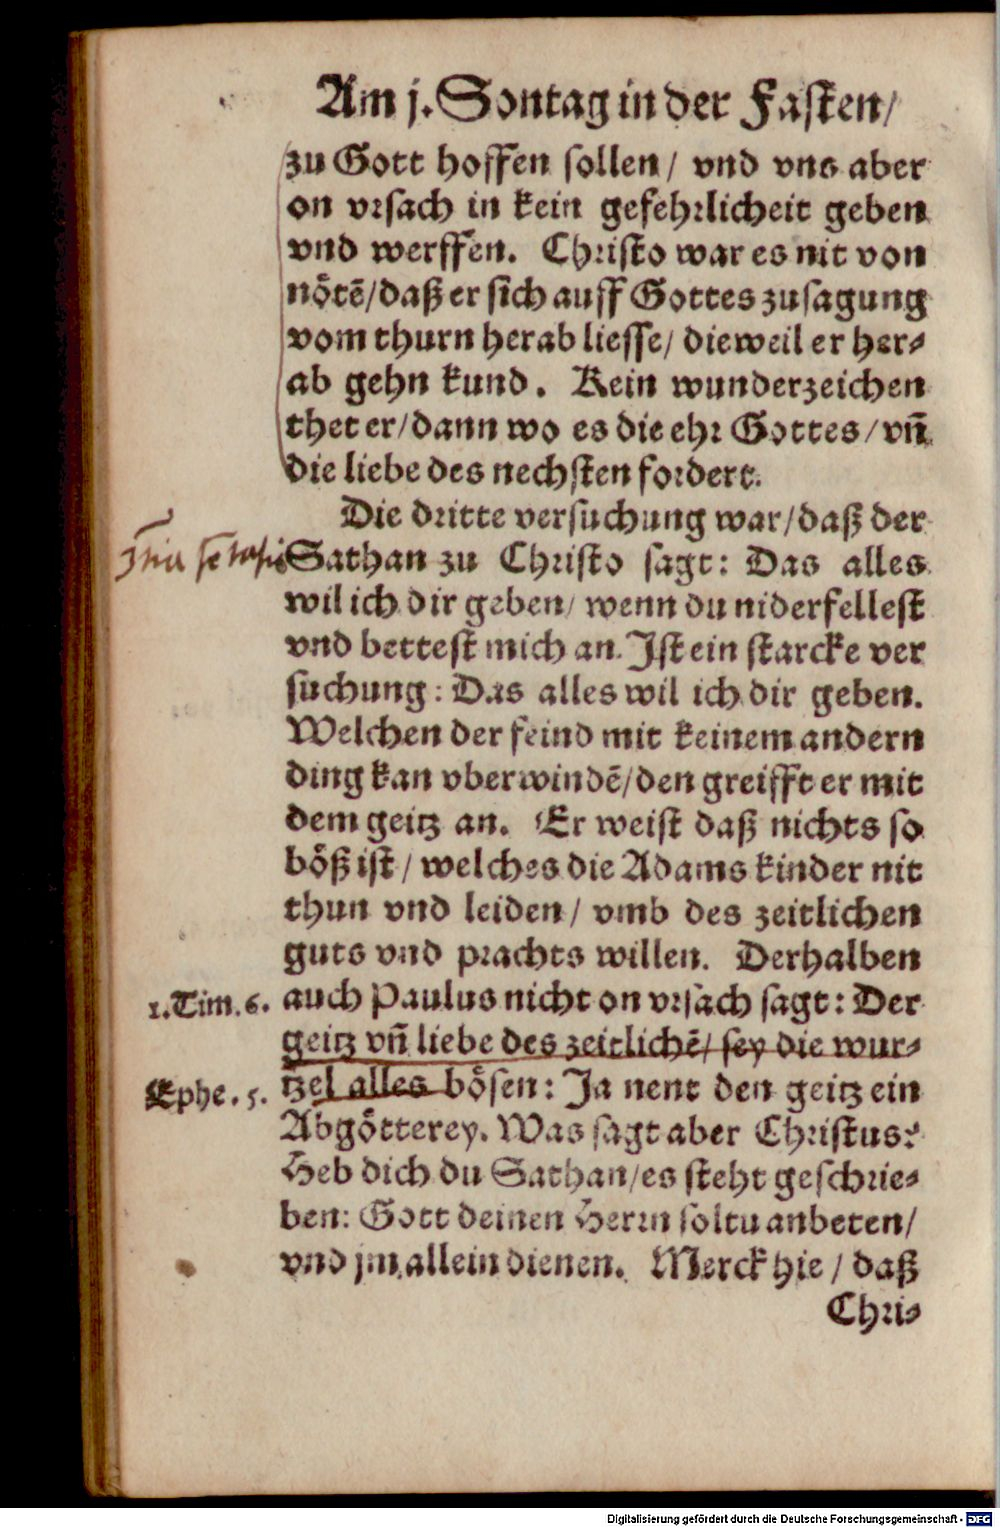 Am j. Sontag in der Fasten/
zu Gott hoffen sollen/ vnd vns aber
on vrsach in kein gefehrlicheit geben
vnd werffen. Christo war es nit von
nötẽ/daß er sich auff Gottes zusagung
vom thurn herab liesse/ dieweil er her⸗
ab gehn kund. Kein wunderzeichen
thet er/dann wo es die ehr Gottes/vñ
die liebe des nechsten fordert.
Die dritte versuchung war/daß der
Sathan zu Christo sagt: Das alles
wil ich dir geben/ wenn du niderfellest
vnd bettest mich an. Ist ein starcke ver
suchung: Das alles wil ich dir geben.
Welchen der feind mit keinem andern
ding kan vberwindẽ/den greifft er mit
dem geitz an. Er weist daß nichts so
böß ist/ welches die Adams kinder nit
thun vnd leiden/ vmb des zeitlichen
guts vnd prachts willen. Derhalben
1.Tim.6. auch Paulus nicht on vrsach sagt: Der
geitz vñ liebe des zeitlichẽ/ sey die wur⸗
Ephe.5. tzel alles bösen: Ja nent den geitz ein
Abgötterey. Was sagt aber Christus?
Heb dich du Sathan/es steht geschrie⸗
ben: Gott deinen Herrn soltu anbeten/
vnd jm allein dienen. Merck hie/ daß
Chri⸗
Digitalisierung gefördert durch die Deutsche Forschungsgemeinschaft - DFG